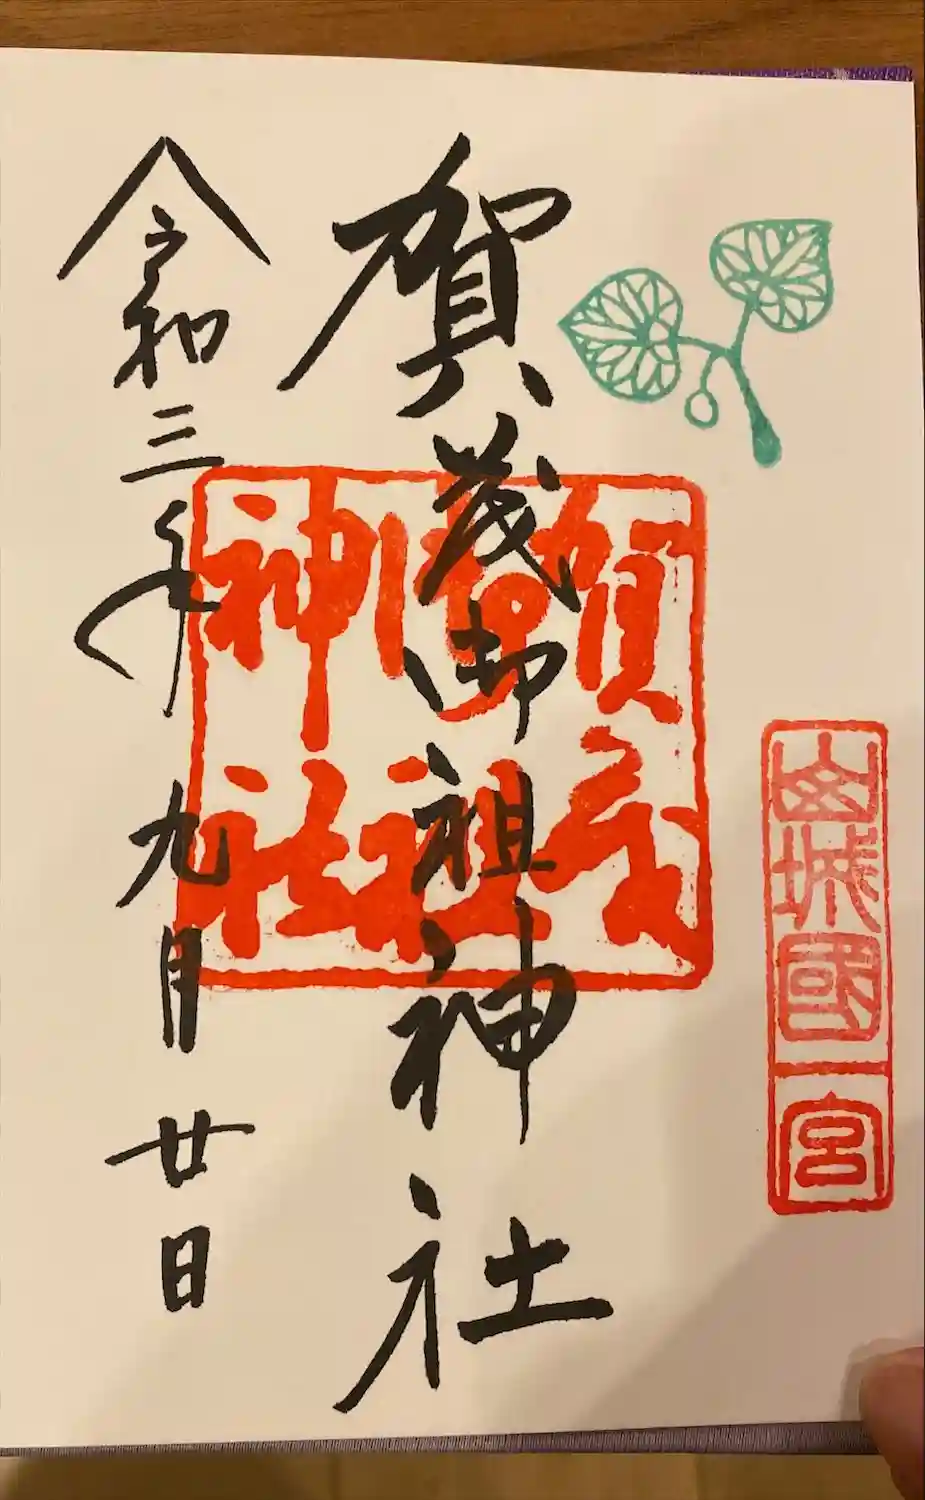 山城國一宮
賀茂御祖神社
賀茂御祖神社
令和三年九月廿日